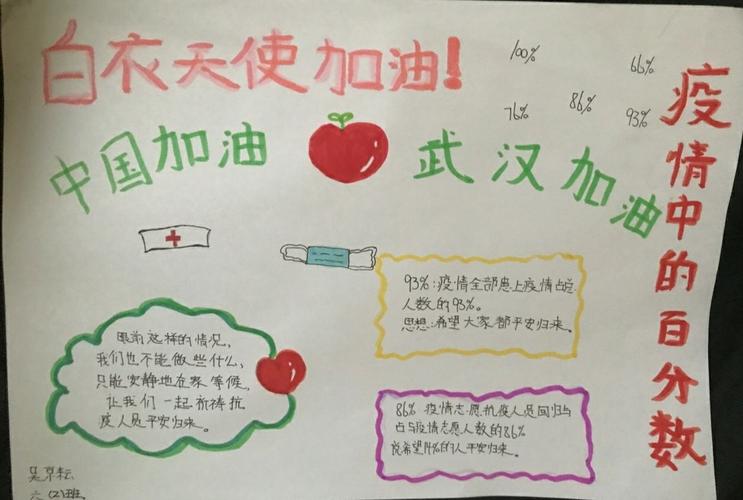 白衣天使加油!
100%
66%
76%
86%
93%
疫情中的百分数
中国加油
武汉加油
93%:疫情全部患上疫情占总
人数的93%。
思想:希望大家都平安归来。
眼前这样的情况,
我们也不能做些什么,
只能安静地在家等候,
让我们一起祈祷抗
疫人员平安归来。
86% 疫情志愿抗疫人员回归与
占与疫情志愿人数的86%
希望14%的人平安归来。
六(2)班